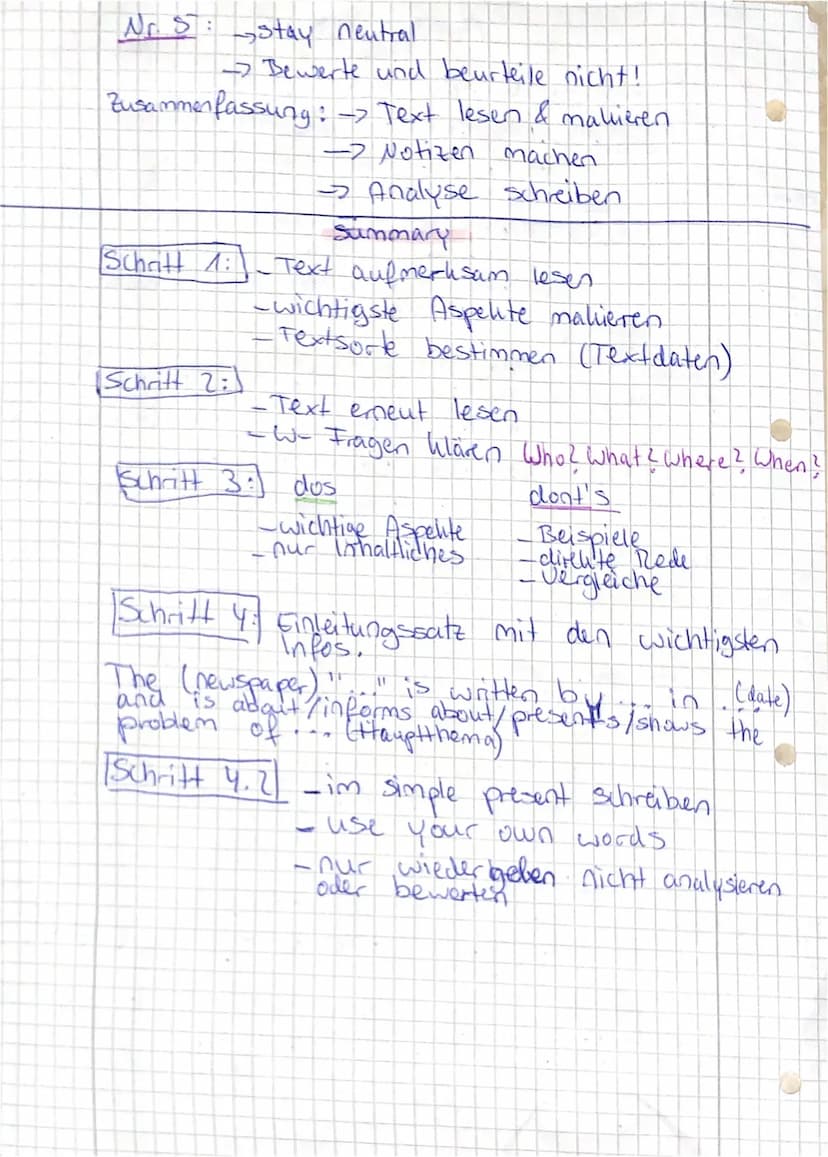 Nr. 5: → stay neutral
→ Bewerte und beurteile nicht!
Zusammenfassung: → Text lesen & makieren
→ Notizen machen
→ Analyse schreiben
summary
Schritt 1: - Text aufmerksam lesen
- wichtigste Aspekte makieren
- Textsorte bestimmen (Textdaten)
Schritt 2:
- Text erneut lesen
- W- Fragen klären Who? What? Where? When?
Schritt 3: dos dont's
- wichtige Aspekte - Beispiele
- nur Inhaltliches - direkte Rede
- Vergleiche
Schritt 4: Einleitungssatz mit den wichtigsten
Infos.
The (newspaper) "..." is written by ... in ... (date)
and is about/informs about/presents/shows the
problem of ... (Hauptthema)
Schritt 4.2 - im simple present schreiben
- use your own words
- nur wiedergeben nicht analysieren
oder bewerten